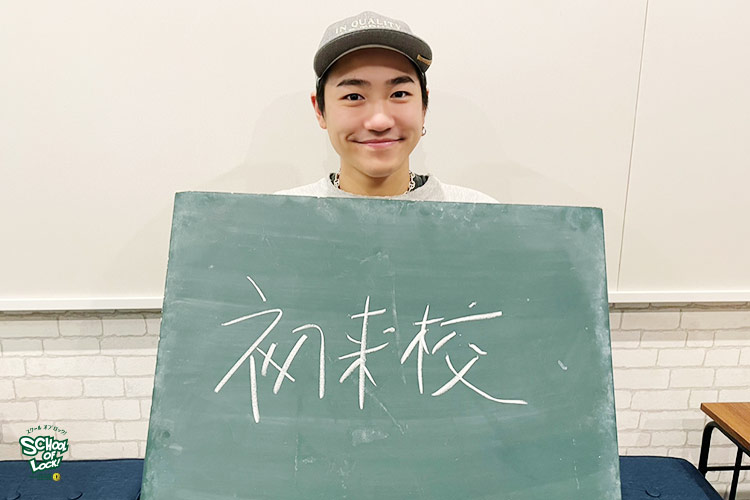 IN QUALITY
初来校
スクールオブロック!
SCHOOL
OF
LOCK!